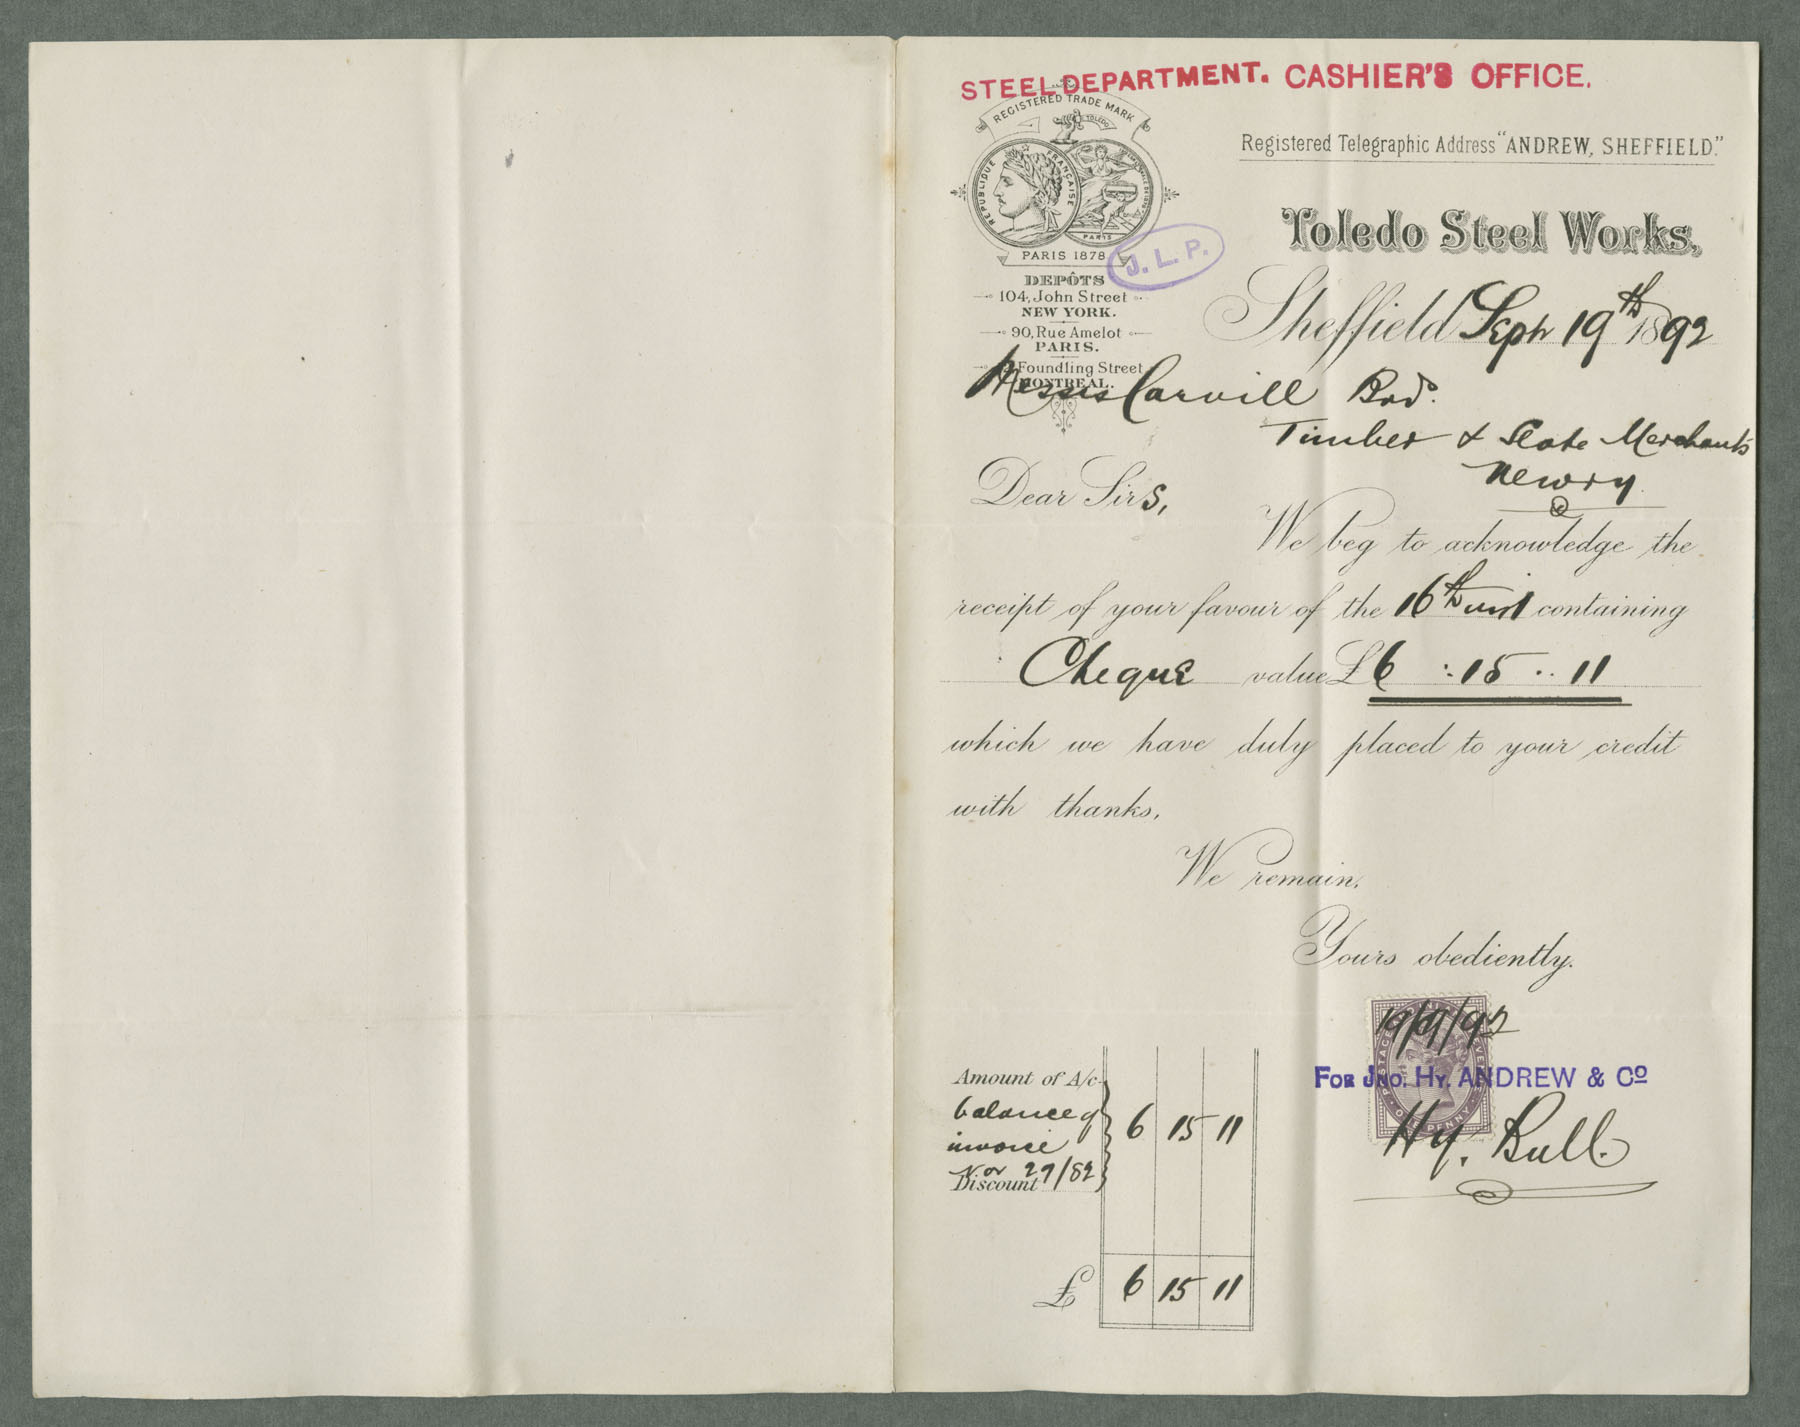 STEEL DEPARTMENT. CASHIER'S OFFICE.
REGISTERED TRADE MARK
TOLEDO
REPUBLIQUE FRANÇAISE
PARIS
PARIS 1878
J. L. P.
Registered Telegraphic Address "ANDREW, SHEFFIELD."
Toledo Steel Works,
DEPÔTS
104, John Street
NEW YORK.
90, Rue Amelot
PARIS.
Foundling Street
MONTREAL.
Sheffield Sept 19th 1892
Messrs Carvill Bros.
Timber & Slate Merchants
Newry
Dear Sirs,
We beg to acknowledge the
receipt of your favour of the 16th inst containing
Cheque value £6 : 15 : 11
which we have duly placed to your credit
with thanks,
We remain,
Yours obediently.
19/9/92
FOR JNO. HY. ANDREW & CO
Hy. Bull.
Amount of A/c
balance of
invoice
Nov 29/82
Discount
6 15 11
£ 6 15 11